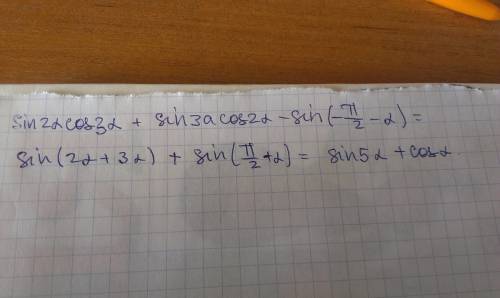 sin2αcos3α + sin3αcos2α - sin(-π/2 - α) =
sin(2α + 3α) + sin(π/2 + α) = sin5α + cosα